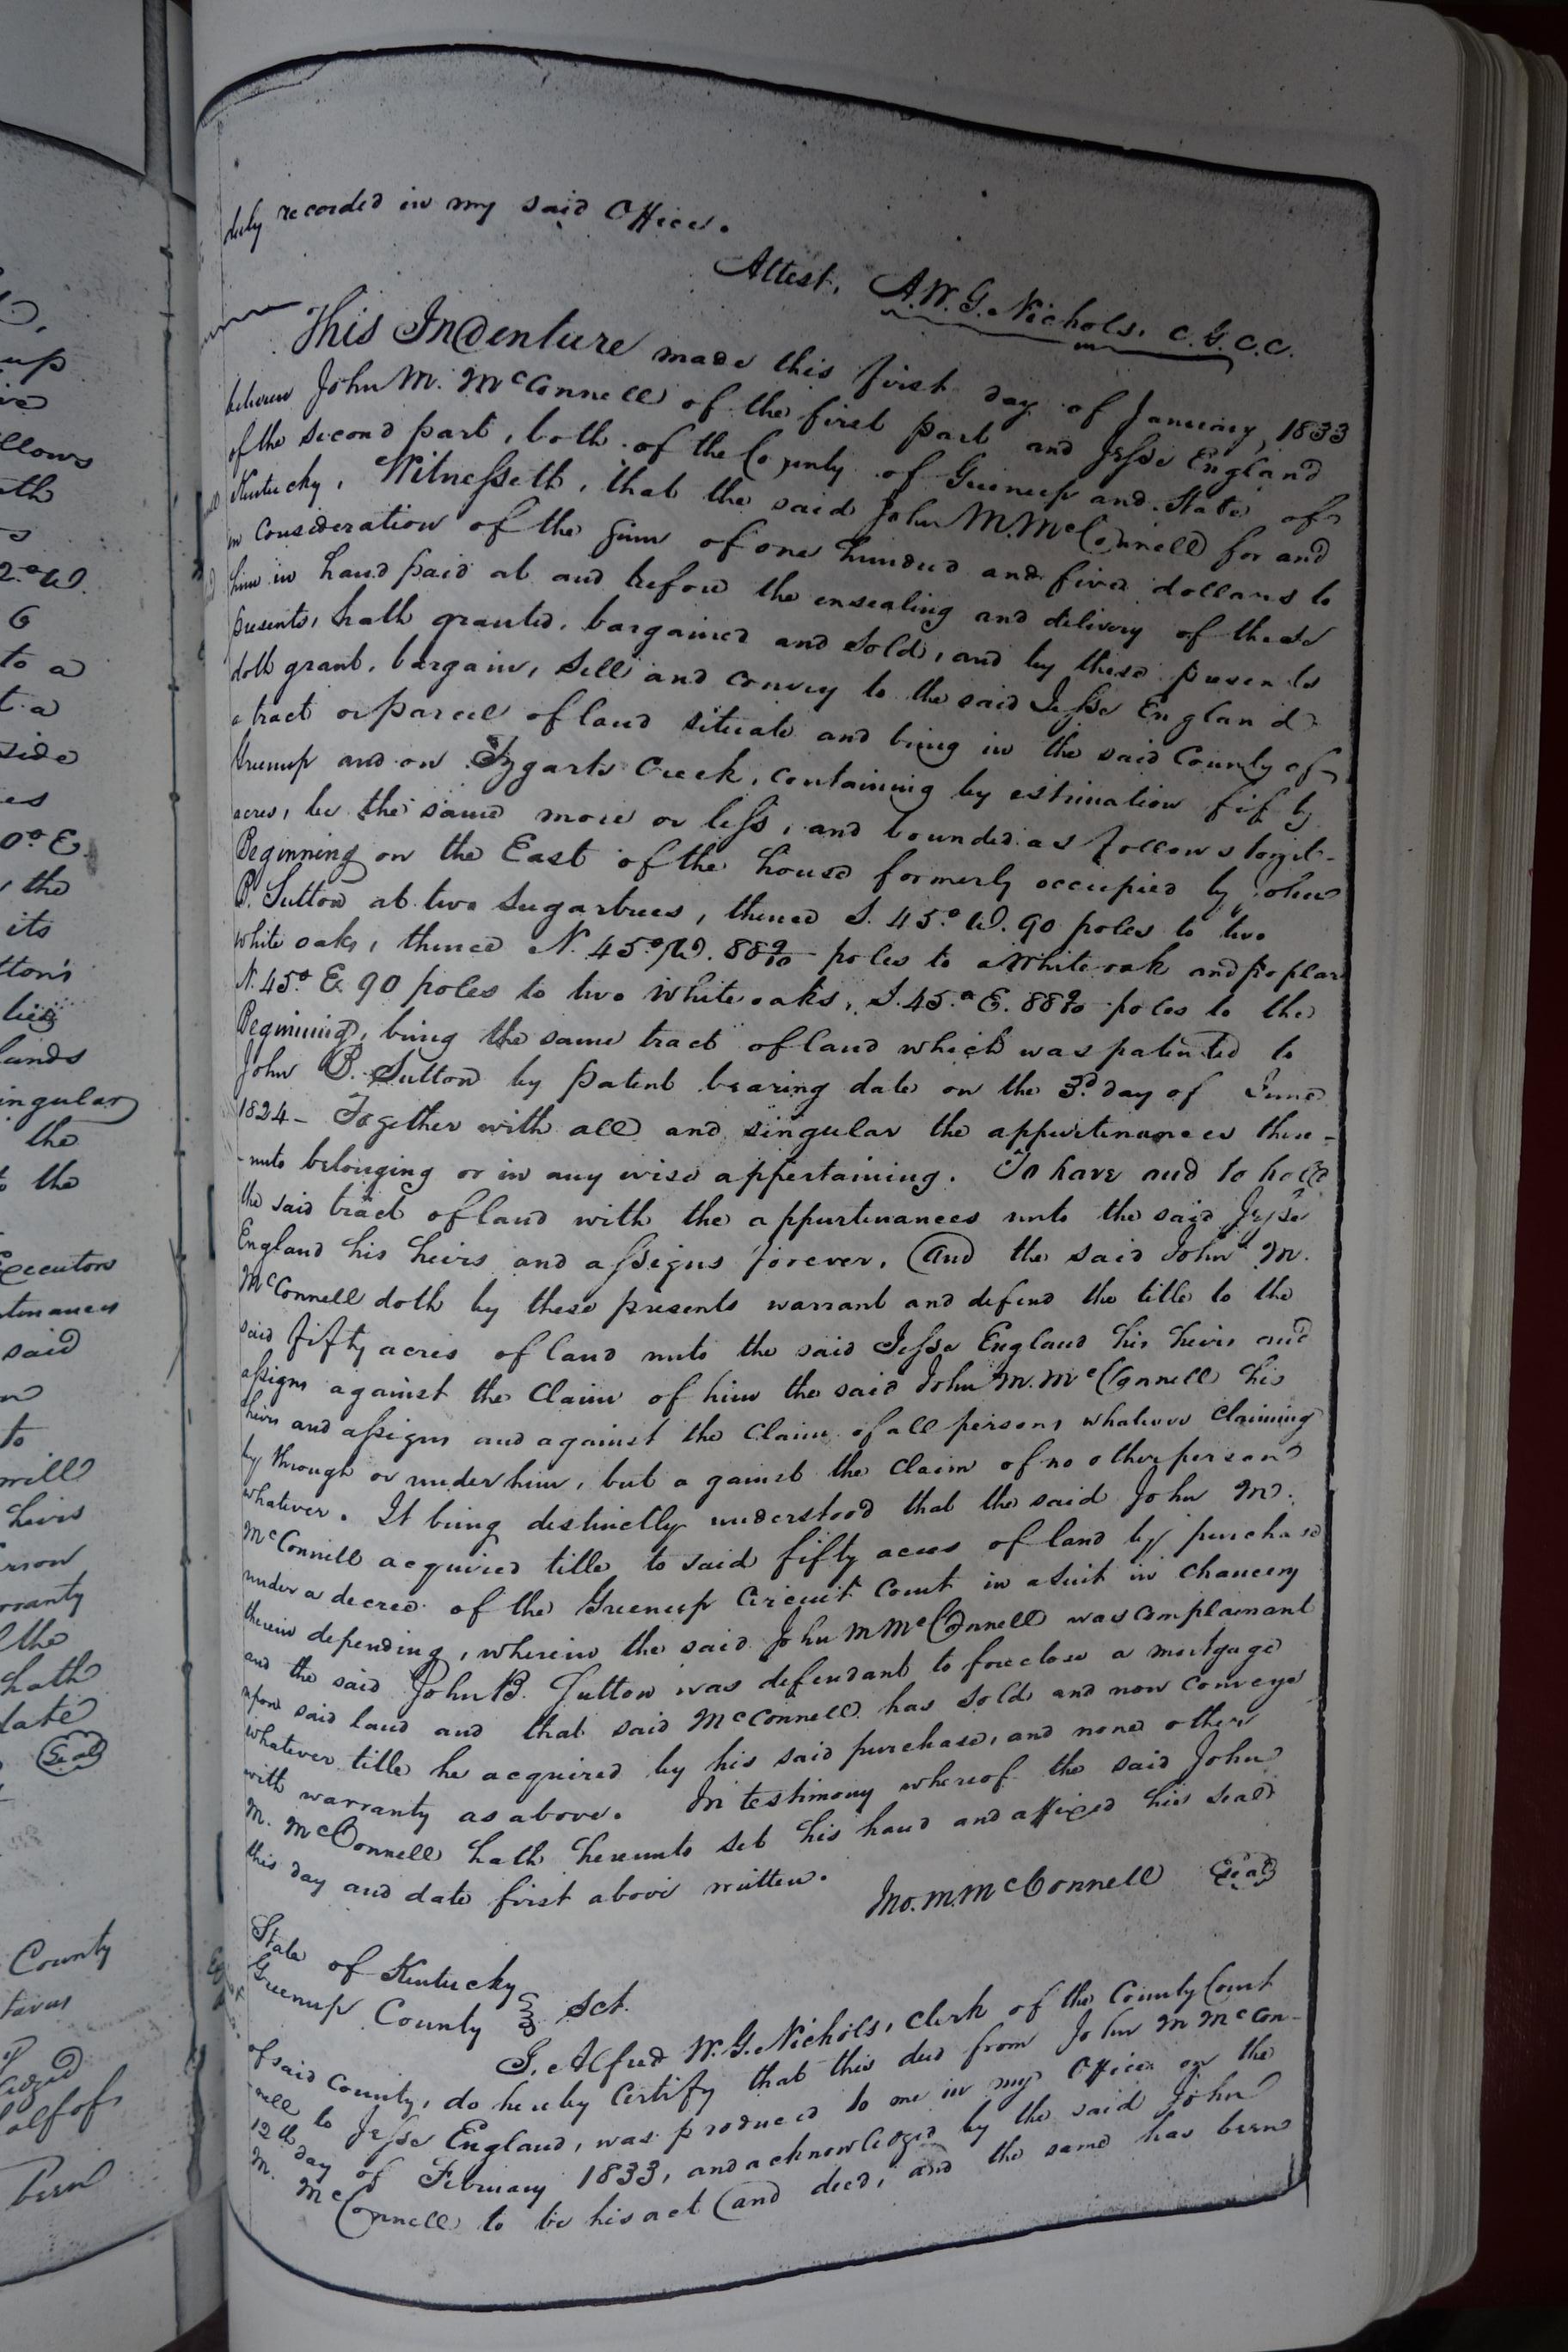 duly recorded in my said Office.
Attest, A. W. G. Nichols. C. G. C. C.
This Indenture made this first day of January, 1833
between John M. McConnell of the first part and Jesse England
of the second part, both of the County of Greenup and State of
Kentucky, Witnesseth, that the said John M. McConnell for and
in consideration of the sum of one hundred and five dollars to
him in hand paid at and before the ensealing and delivery of these
presents, hath granted, bargained and sold, and by these presents
doth grant, bargain, sell and convey to the said Jesse England
a tract or parcel of land situate and being in the said County of
Greenup and on Tygarts Creek, containing by estimation fifty
acres, be the same more or less, and bounded as follows towit-
Beginning on the East of the house formerly occupied by John
B. Sutton at two Sugartrees, thence S. 45.° W. 90 poles to two
white oaks, thence N. 45.° W. 88 9/10 poles to a White oak and poplar
N. 45.° E. 90 poles to two White oaks, S. 45.° E. 88 9/10 poles to the
Beginning, being the same tract of land which was patented to
John B. Sutton by patent bearing date on the 3.d day of June
1824 - Together with all and singular the appurtenances there-
-unto belonging or in any wise appertaining. To have and to hold
the said tract of land with the appurtenances unto the said Jesse
England his heirs and assigns forever. And the said John M.
McConnell doth by these presents warrant and defend the title to the
said fifty acres of land unto the said Jesse England his heirs and
assigns against the Claim of him the said John M. McConnell his
heirs and assigns and against the Claim of all persons whatever claiming
by through or under him, but against the Claim of no other person
whatever. It being distinctly understood that the said John M.
McConnell acquired title to said fifty acres of land by purchase
under a decree of the Greenup Circuit Court in a suit in Chancery
therein depending, wherein the said John M McConnell was complainant
and the said John B. Sutton was defendant to foreclose a mortgage
upon said land and that said McConnell has sold and now conveys
whatever title he acquired by his said purchase, and none other
with warranty as above. In testimony whereof the said John
M. McConnell hath hereunto set his hand and affixed his seal
this day and date first above written.
Jno. M. McConnell Seal
State of Kentucky
Greenup County Sct.
I, Alfred W. G. Nichols, Clerk of the County Court
of said County, do hereby Certify that this deed from John M McCon-
-nell to Jesse England, was produced to me in my Office on the
12th day of February 1833, and acknowledged by the said John
M. McConnell to be his act and deed, and the same has been